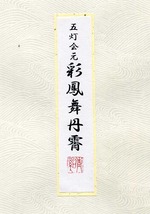 五灯会元彩鳳舞丹霄